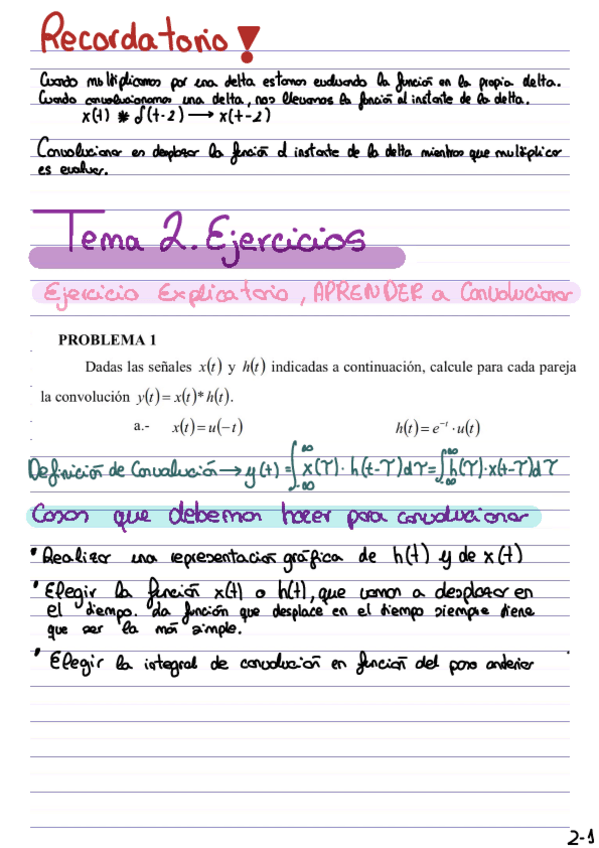 Recordatorio!
Cuando multiplicamos por una delta estamos evaluando la función en la propia delta.
Cuando convolucionamos una delta, nos llevamos la función al instante de la delta.
x(t) * δ(t-2) → x(t-2)
Convolucionar es desplazar la función al instante de la delta mientras que multiplicar
es evaluar.
Tema 2. Ejercicios
Ejercicio Explicatorio, APRENDER a Convolucionar
PROBLEMA 1
Dadas las señales x(t) y h(t) indicadas a continuación, calcule para cada pareja
la convolución y(t)= x(t)* h(t).
a.- x(t)=u(-t) h(t)=e^{-t}·u(t)
Definición de Convolución → y(t) = ∫_{-∞}^{∞} x(τ)·h(t-τ)dτ = ∫_{-∞}^{∞} h(τ)·x(t-τ)dτ
Cosas que debemos hacer para convolucionar
• Realizar una representación gráfica de h(t) y de x(t)
• Elegir la función x(t) o h(t), que vamos a desplazar en
el tiempo. La función que desplace en el tiempo siempre tiene
que ser la más simple.
• Elegir la integral de convolución en función del paso anterior
2-1